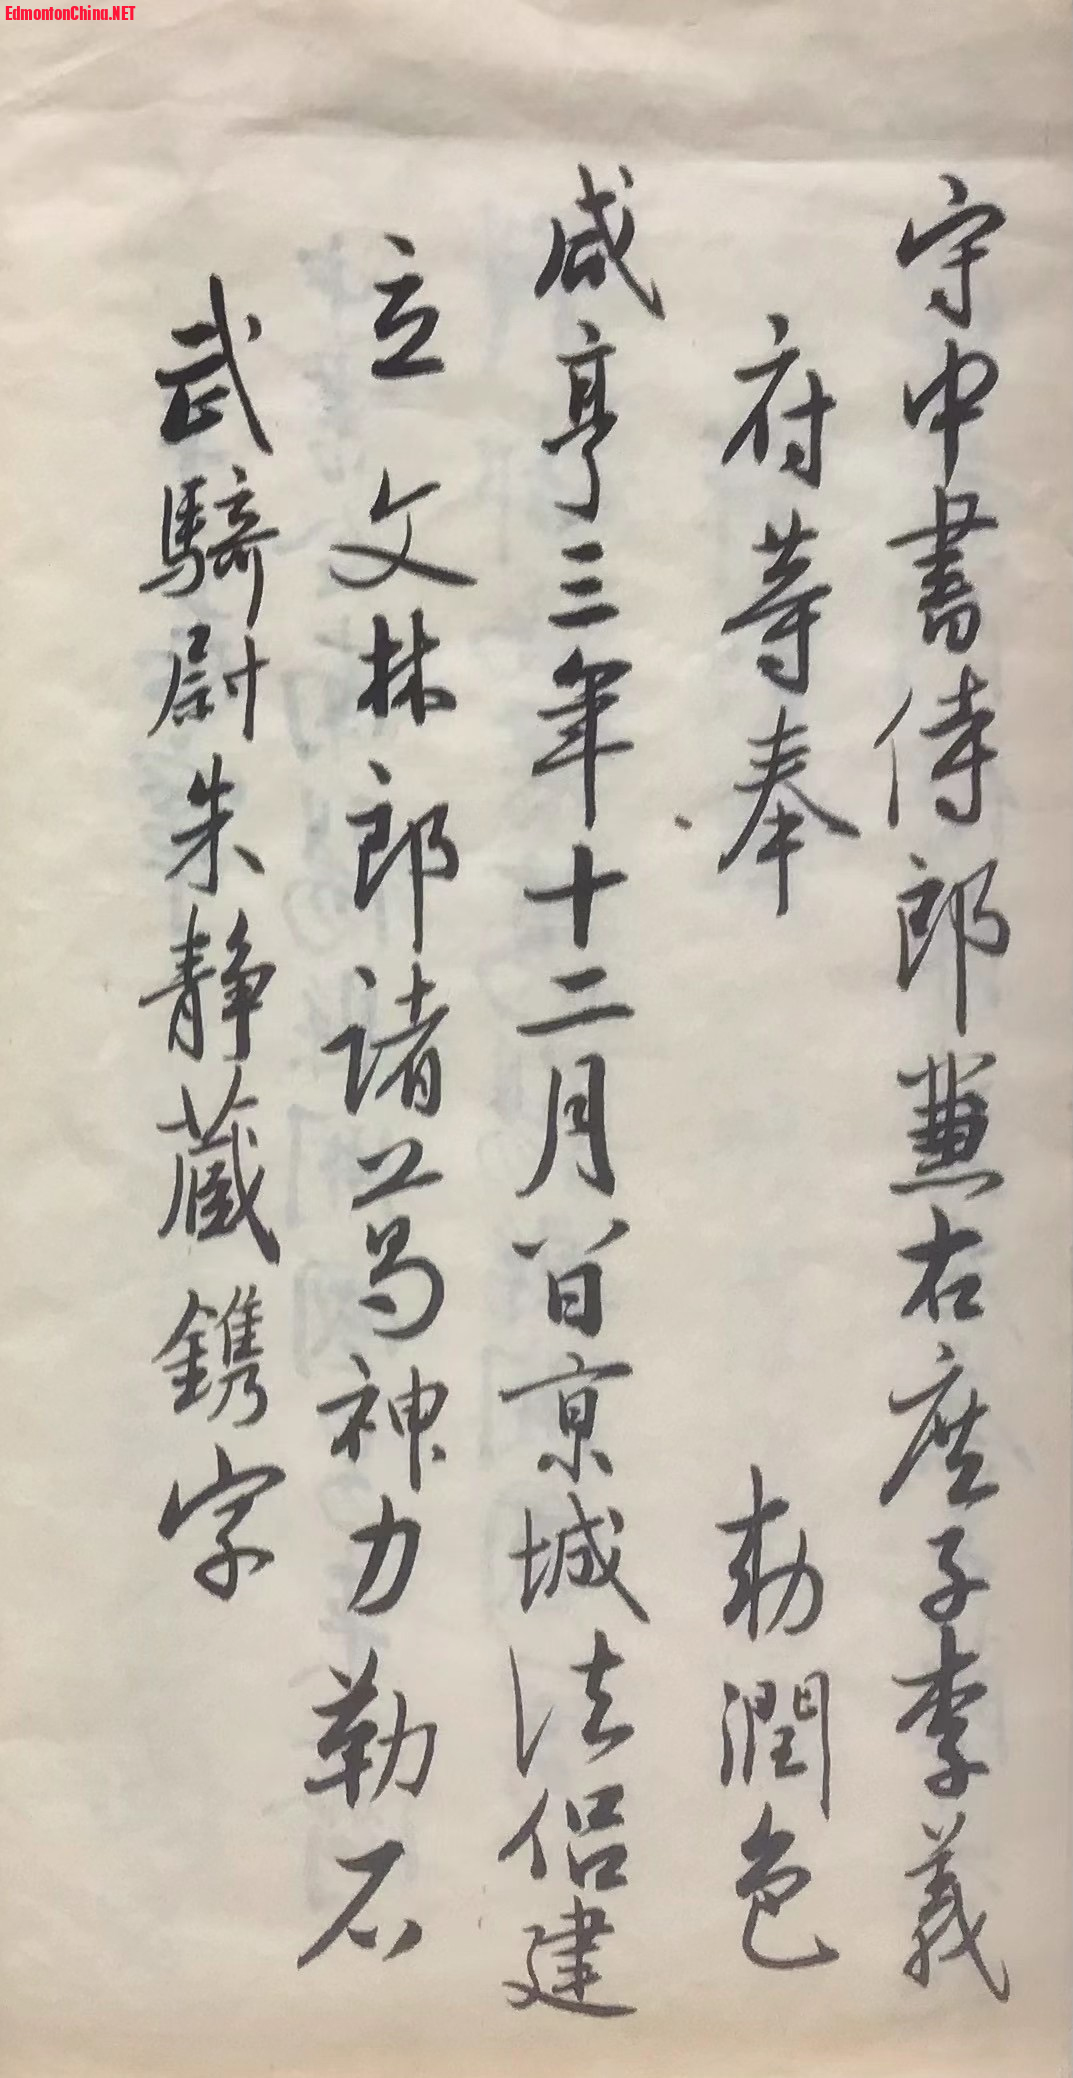 EdmontonChina.NET
守中書侍郎兼右庶子李義
府等奉 勅潤色
咸亨三年十二月八日京城法侶建
立 文林郎諸葛神力勒石
武騎尉朱静藏鐫字